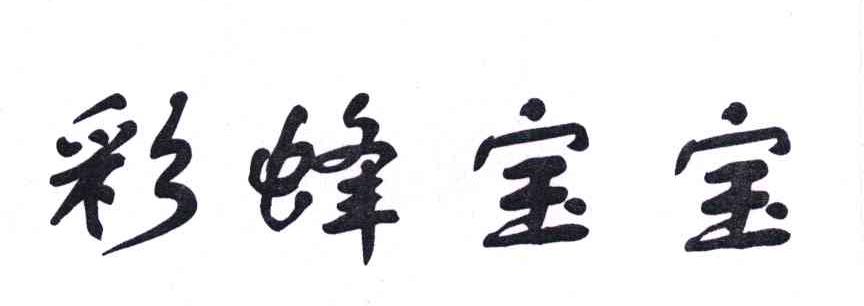 彩蜂宝宝